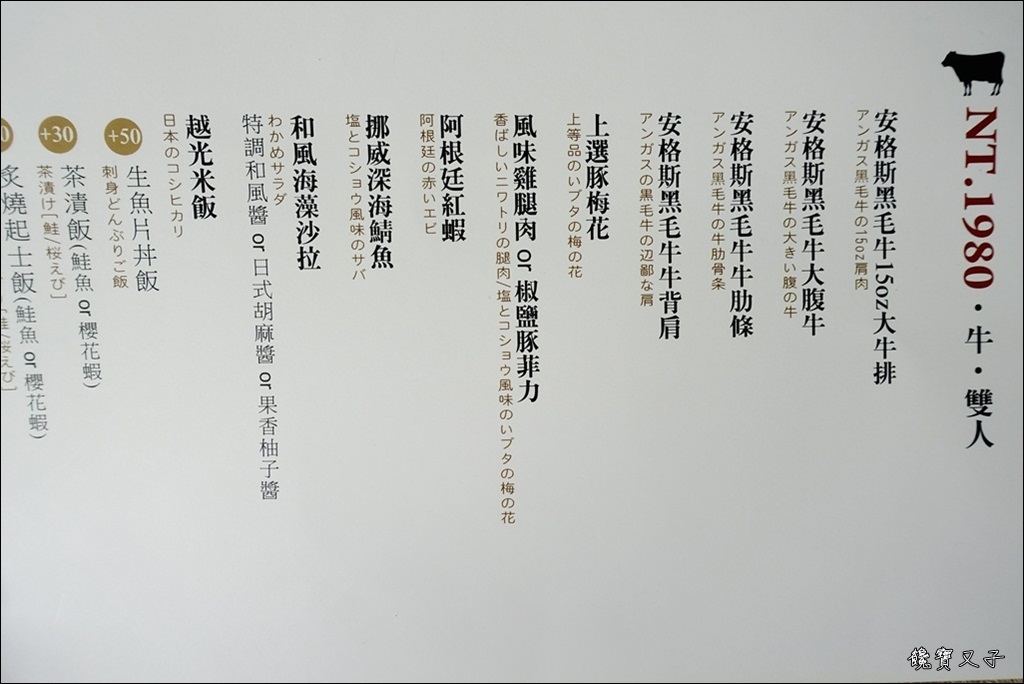 NT.1980・牛・雙人
安格斯黑毛牛15oz大牛排
アンガス黑毛牛の15oz肩肉
安格斯黑毛牛大腹牛
アンガス黑毛牛の大きい腹の牛
安格斯黑毛牛牛肋條
アンガス黑毛牛の牛肋骨条
安格斯黑毛牛牛背肩
アンガスの黒毛牛の辺鄙な肩
上選豚梅花
上等品のいブタの梅の花
風味雞腿肉 or 椒鹽豚菲力
香ばしいニワトリの腿肉/塩とコショウ風味のいブタの梅の花
阿根廷紅蝦
阿根廷の赤いエビ
挪威深海鯖魚
塩とコショウ風味のサバ
和風海藻沙拉
わかめサラダ
特調和風醬 or 日式胡麻醬 or 果香柚子醬
越光米飯
日本のコシヒカリ
+50 生魚片丼飯
刺身どんぶりご飯
+30 茶漬飯(鮭魚 or 櫻花蝦)
茶漬け[鮭/桜えび]
0 炙燒起士飯(鮭魚 or 櫻花蝦)
[鮭/桜えび]
饞寶叉子